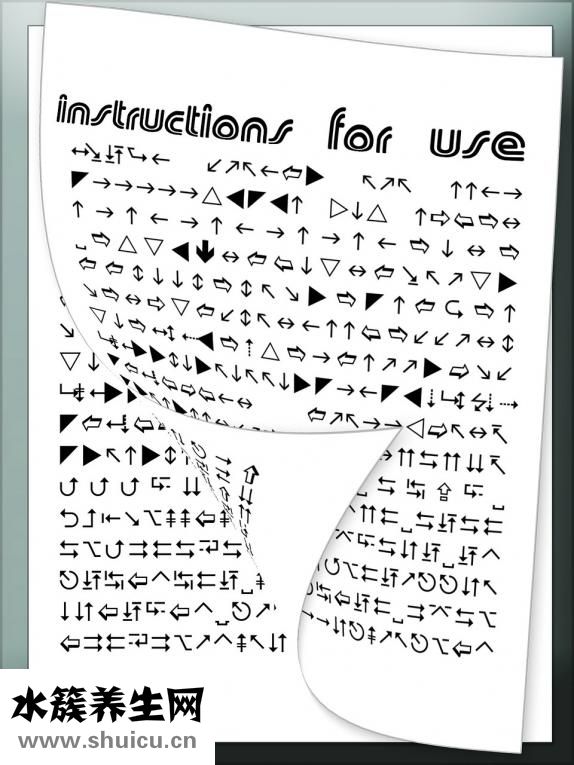 instructions for use
水簇养生网
www.shuicu.cn